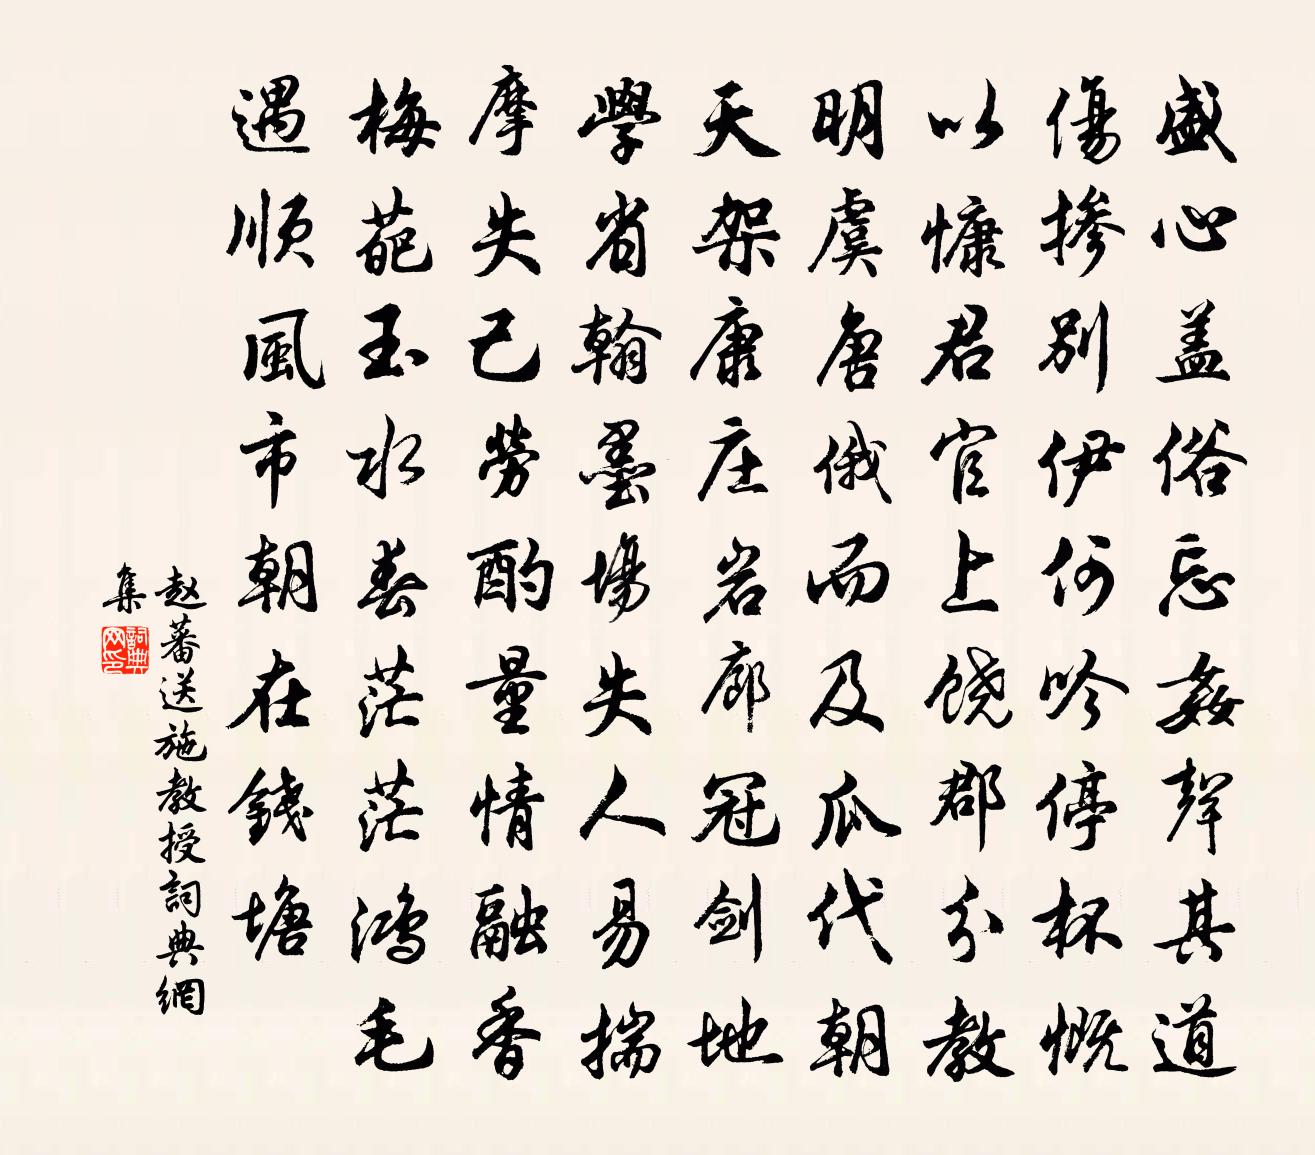 盛心盖俗忘姦聲其道
傷摻別伊何吟停杯慨
以慷君官上饒郡分教
明虞唐俄而及瓜代朝
天架康庄岩廊冠剑地
學省翰墨場失人易揣
摩失己勞酌量情融香
梅葩玉水春茫茫鴻毛
遇順風市朝在錢塘
赵蕃送施教授詞典網
集
詞典网印